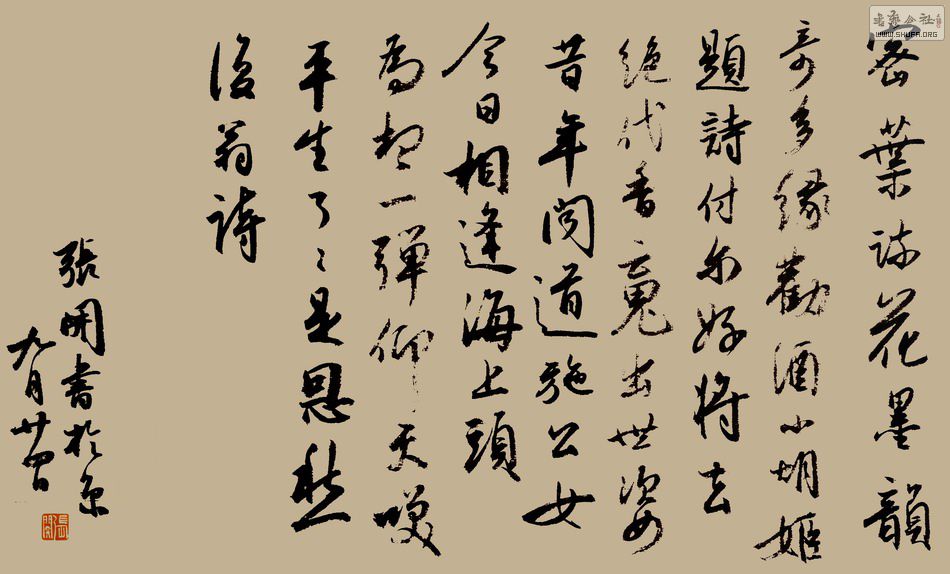 密葉疏花墨韻
奇多缘勸酒小胡姬
題詩付尔好將去
絶代香魂出世姿
昔年闻道施公女
今日相逢海上頭
為起一彈仰天嘆
平生了々是恩愁
復翁詩
張開書於京
九月廿
書法公社
WWW.SHUFA.ORG